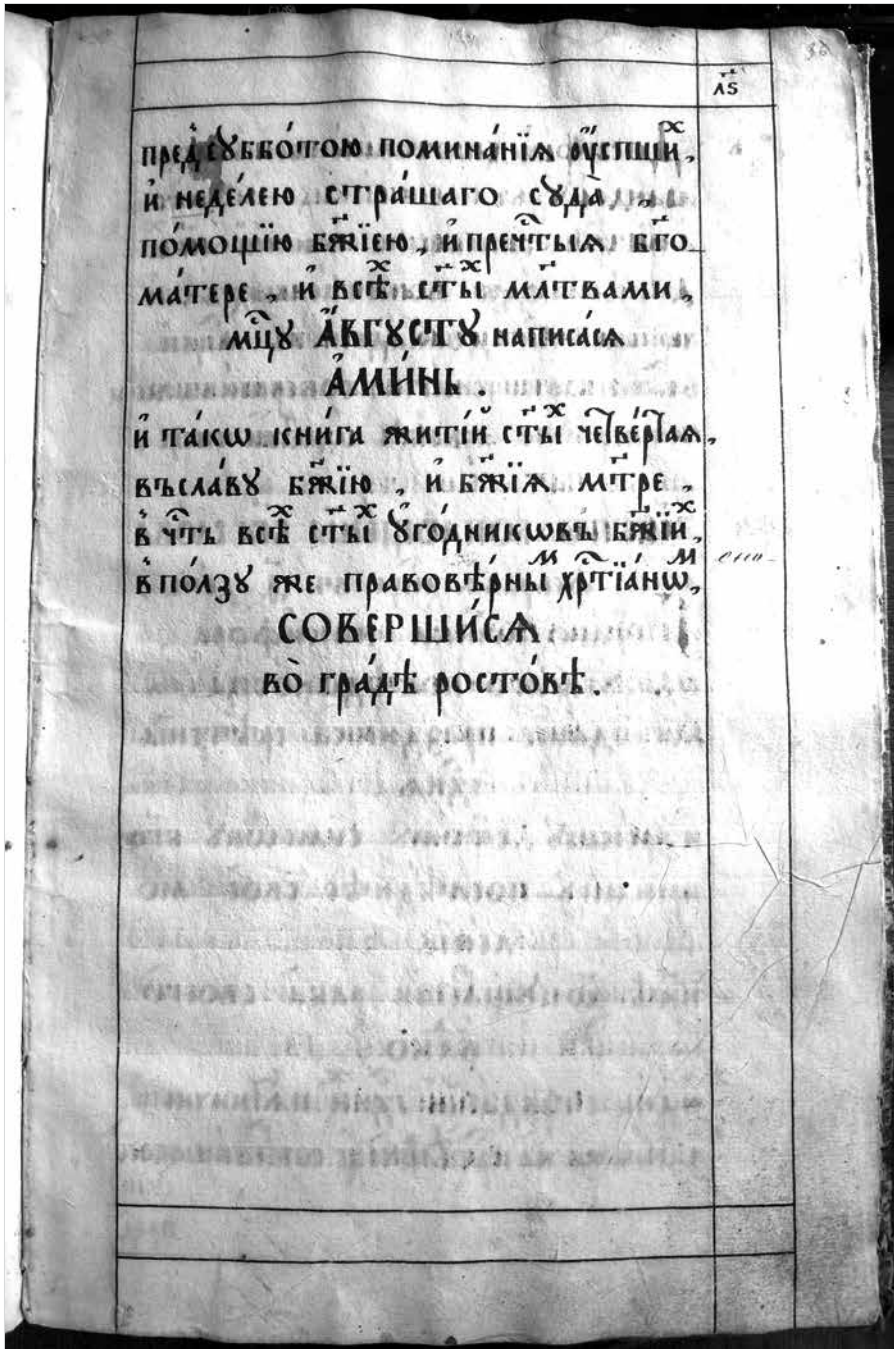 36
л҃ѕ
пред̾ сꙋббо́тою помина́нїѧ ᲂу҆спшиⷯ,
и҆ недѣ́лею стра́шаго сꙋда̀ ,,
по́мощїю бж҃їею, и҆ преⷱ҇тыѧ бг҃о
ма́тере, и҆ всѣⷯ ст҃ыⷯ мл҃твами,
мцⷭ҇ꙋ а҆́вгꙋстꙋ написа́сѧ
а҆ми́нь.
и҆ та́кѡ кни́га жити́й ст҃ыⷯ чеⷮве́рⷮаѧ,
въ сла́вꙋ бж҃їю, и҆ бж҃їѧ мт҃ре,
в̾ чⷭ҇ть всѣⷯ ст҃ыⷯ ᲂу҆го́дникѡвъ бж҃їиⷯ,
в̾ по́лзꙋ же правовѣ́рныⷨ хрⷭ҇тїа́нѡⷨ,
СОВЕРШИ́СѦ
во̀ гра́дѣ росто́вѣ.